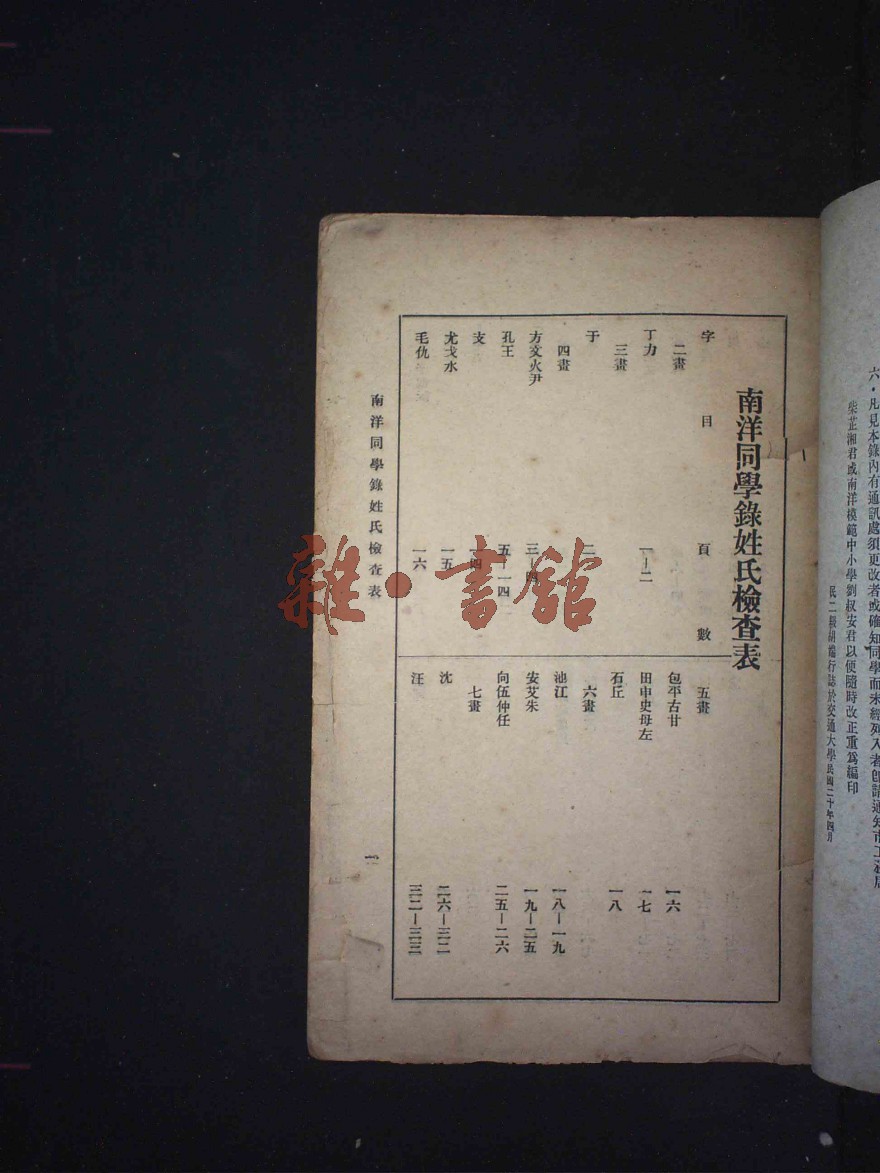 六・凡見本錄內有通訊處須更改者或確知同學而未經列入者卽請通知市工務局
柴芷湘君或南洋模範中小學劉叔安君以便隨時改正重爲編印
民二級胡端行誌於交通大學民國二十年四月
南洋同學錄姓氏檢查表
字目 頁數
二畫
丁力 一—二
三畫
于 二
四畫
方文火尹 三—四
孔王 五—一四
支 一四
尤戈水 一五
毛仇 一六
五畫
包平古甘 一六
田申史毋左 一七
石丘 一八
六畫
池江 一八—一九
安艾朱 一九—二五
向伍仲任 二五—二六
七畫
沈 二六—三二
汪 三二—三三
南洋同學錄姓氏檢查表
雜・書館